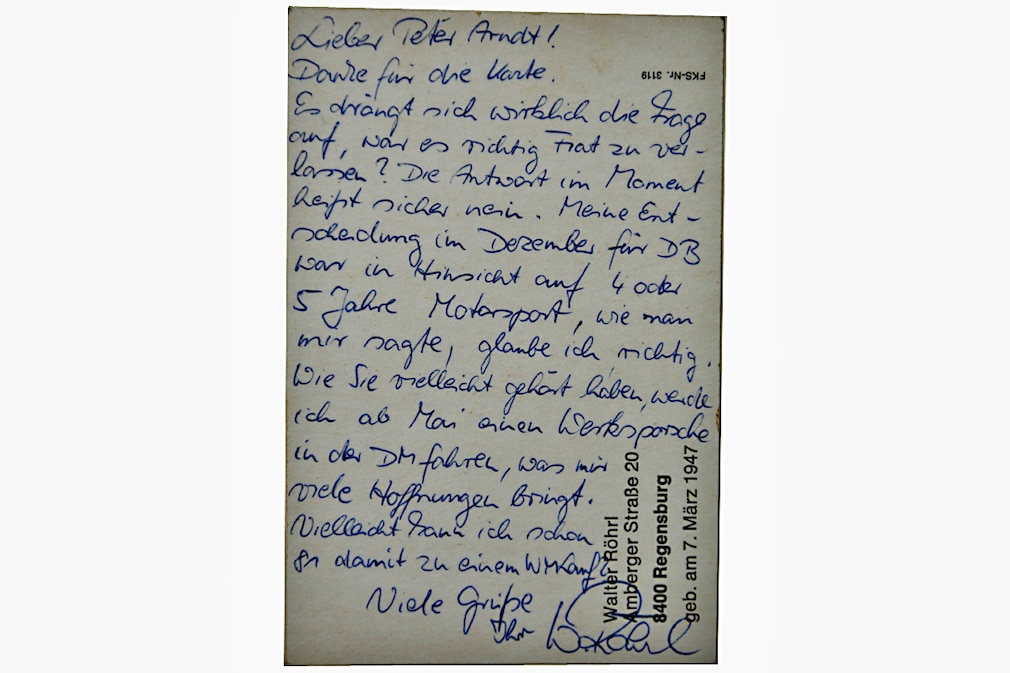 Lieber Peter Arndt!
Danke für die Karte.
Es drängt sich wirklich die Frage
auf, war es richtig Fiat zu ver-
lassen? Die Antwort im Moment
heißt sicher nein. Meine Ent-
scheidung im Dezember für DB
war in Hinsicht auf 4 oder
5 Jahre Motorsport, wie man
mir sagte, glaube ich richtig.
Wie Sie vielleicht gehört haben, werde
ich ab Mai einen Werksporsche
in der DM fahren, was mir
viele Hoffnungen bringt.
Vielleicht kann ich schon
81 damit zu einem WMkampf?
Viele Grüße
Ihr W. Röhrl
FKS-Nr. 3119
Walter Röhrl
Amberger Straße 20
8400 Regensburg
geb. am 7. März 1947